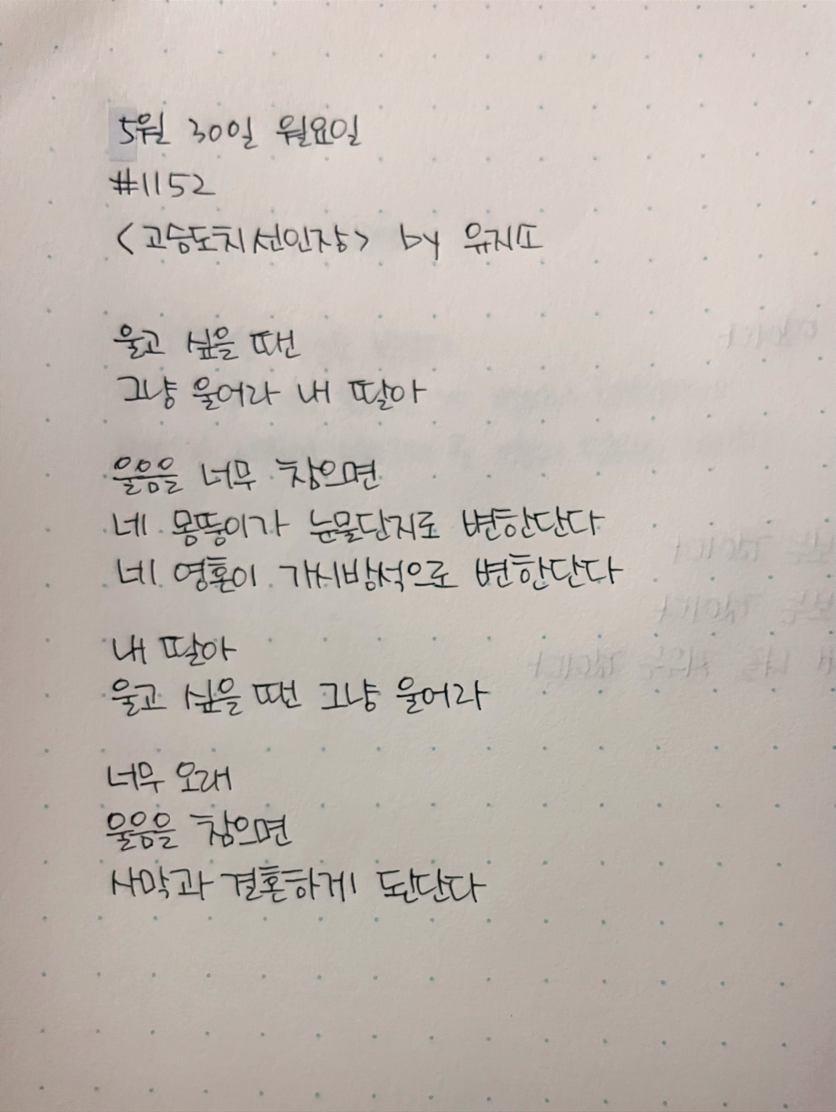 5월 30일 월요일
#1152
<고슴도치선인장> by 유지소
울고 싶을 땐
그냥 울어라 내 딸아
울음을 너무 참으면
네 몸뚱이가 눈물단지로 변한단다
네 영혼이 가시방석으로 변한단다
내 딸아
울고 싶을 땐 그냥 울어라
너무 오래
울음을 참으면
사막과 결혼하게 된단다